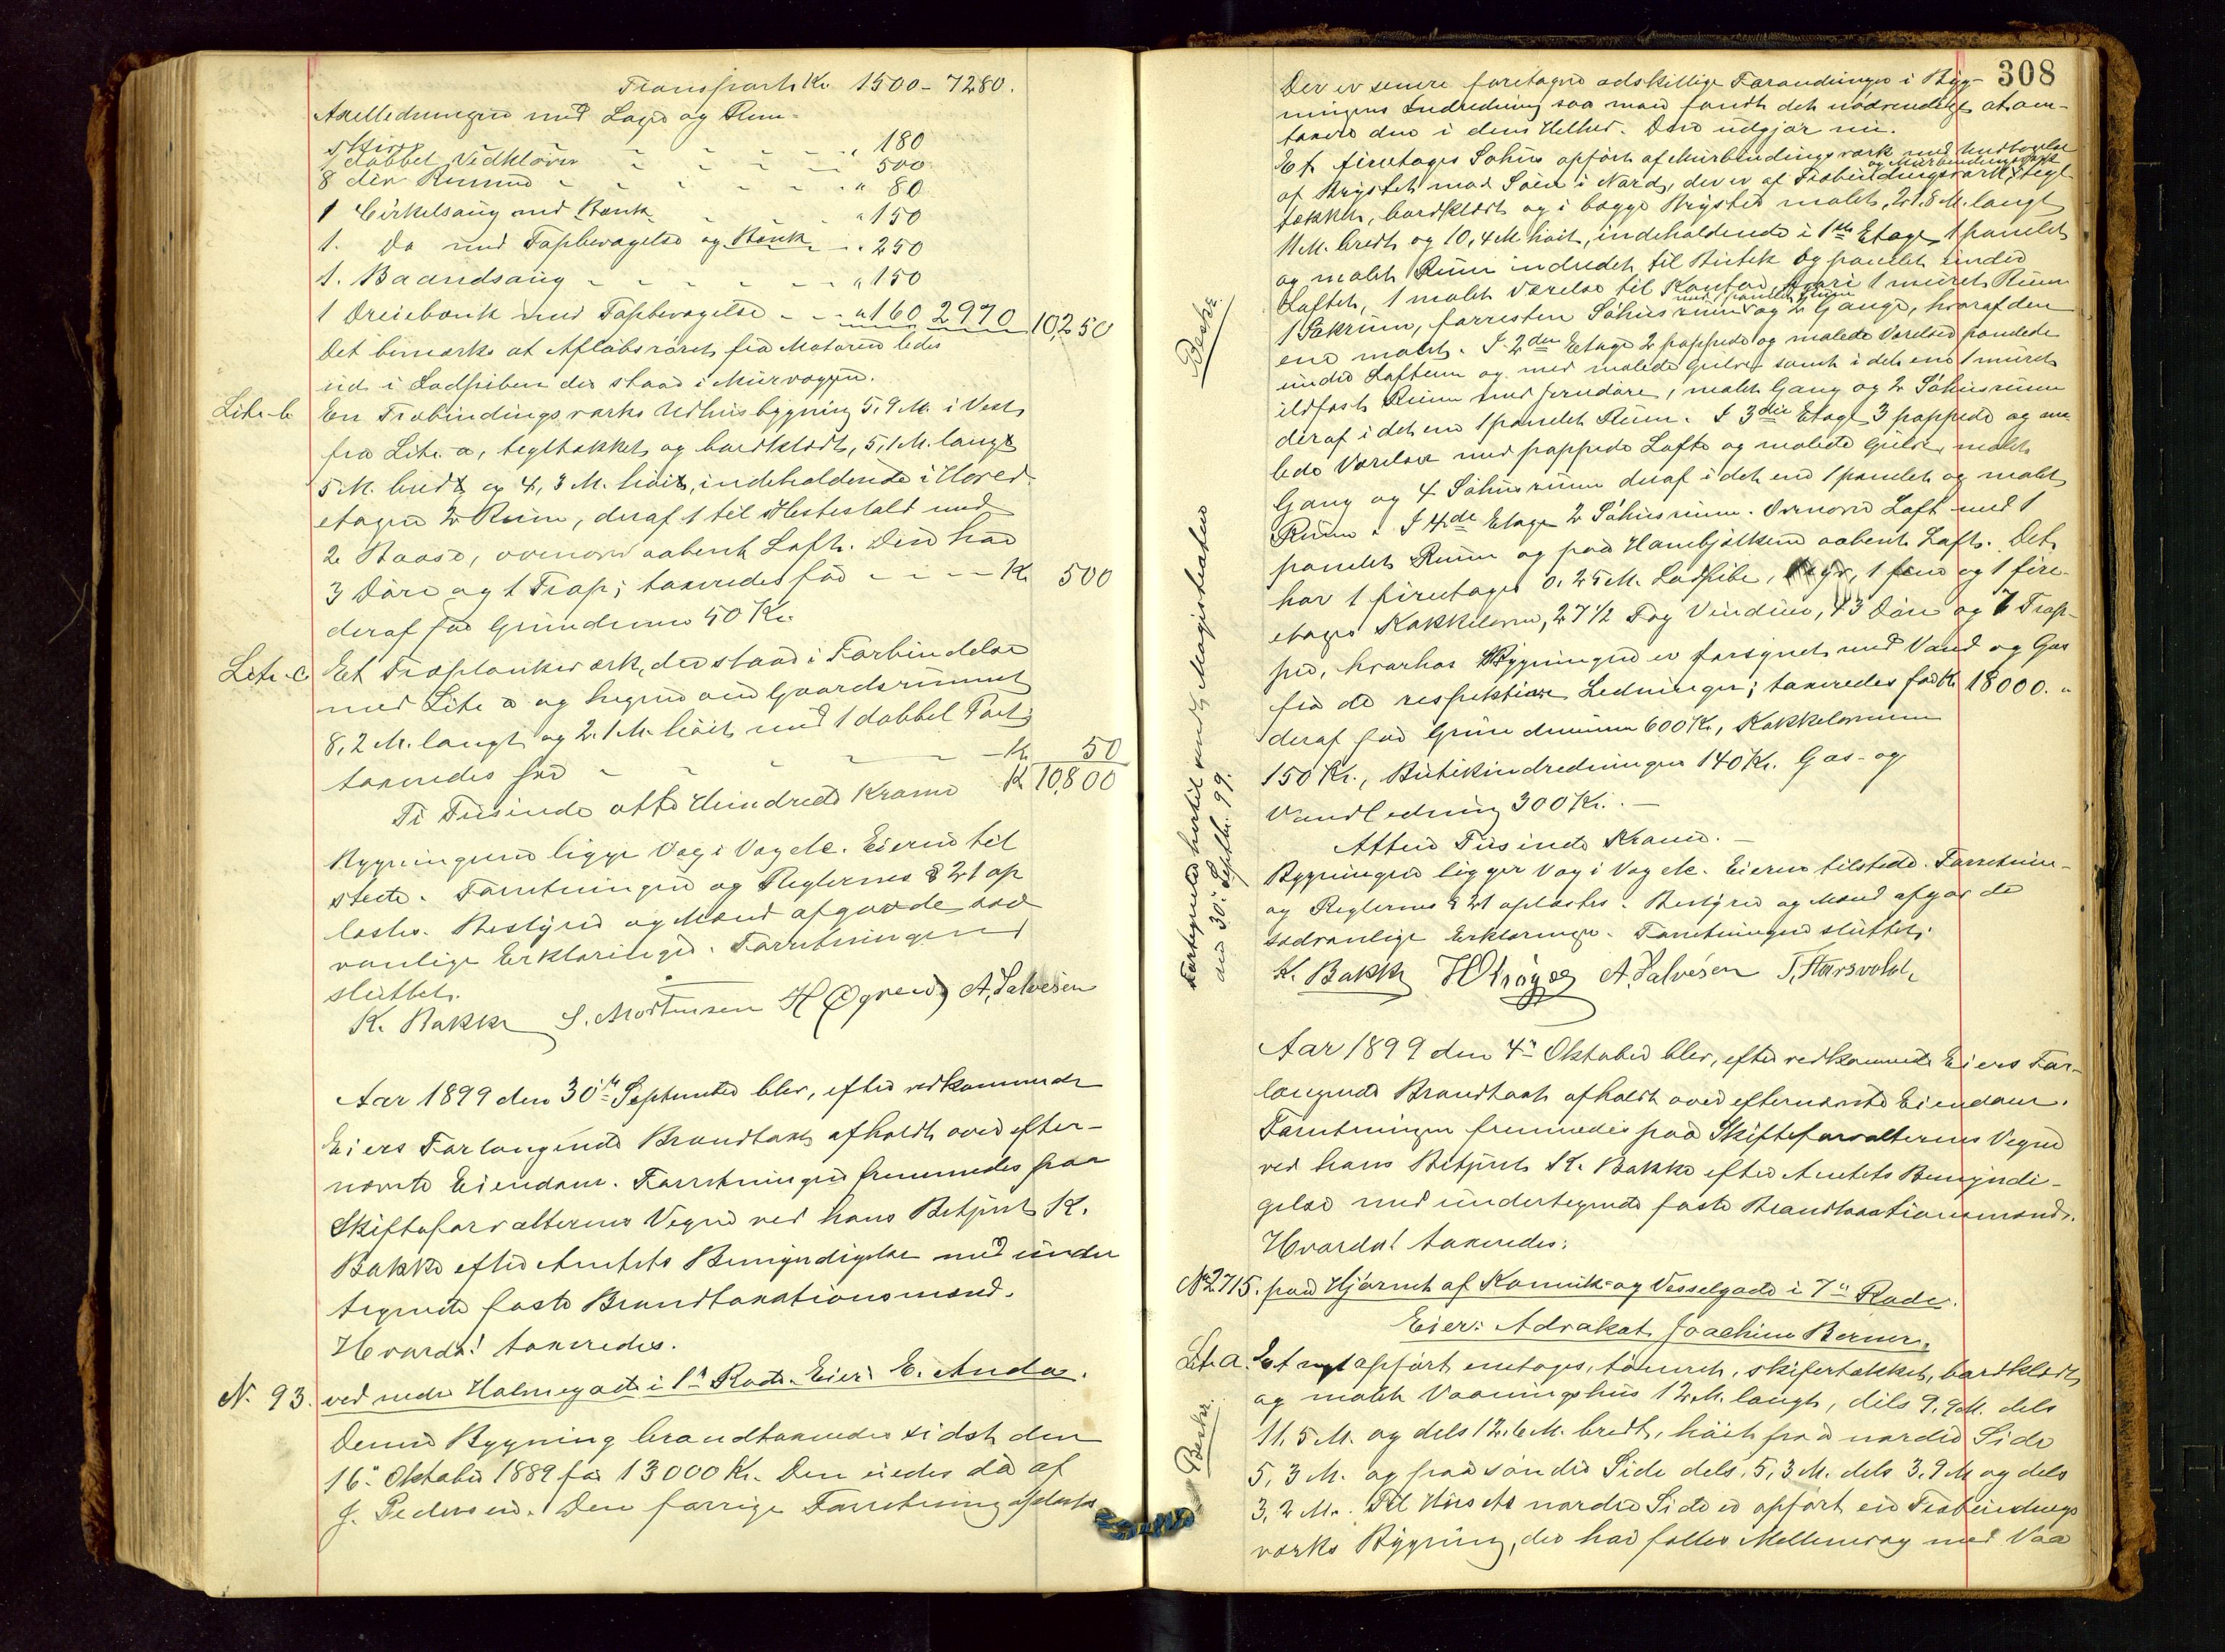 Transport Kr 1500 - 7280.
Axelledningen med Lager og Rem-
skiver - - - - " 180
1 dobbel Vedkløver - - - - 500
8 din Remme - - - - " 80
1 Cirkelsaug med Bænk - - " 150
1. Do med Tapbevægelse og Bænk - - 250
1. Baandsaug - - - - - " 150
1 Dreiebænk med Tapbevægelse - - " 160 2970 10,250
Det bemærkes at Afløbsrøret fra Motoren ledes
ud i Ladpiben der staar i Murvæggen.
Litr. b En Træbindingsværks Udhusbygning 5,9 M. i Vest
fra Litr. a, tegltækket og bordklædt, 5,1 M. langt
5 M. bredt og 4,3 M. høit, indeholdende i Hoved-
etagen 2 Rum, deraf 1 til Hestestald med
2 Baase, ovenover aabent Loft. Den har
3 Døre og 1 Trap; taxeredes for - - - Kr. 500
deraf for Grundmur 50 Kr.
Litr. c Et Træplankeværk, der staar i Forbindelse
med Litr a og hegner om Gaardsrummet
8,2 M. langt og 2.1 M. høit med 1 dobbel Port;
taxeredes for - - - - - Kr. 50
Ti Tusinde otte Hundrede Kroner Kr 10,800
Bygningerne ligger Væg i Væg etc. Eieren til
stede. Forretningen og Reglernes § 21 op
læstes. Bestyrer og Mænd afgav de sæd
vanlige Erklæringer. Forretningen
sluttet.
K. Bakke S. Mortensen H Øgreid A. Salvesen
Aar 1899 den 30te September blev, efter vedkommende
Eiers Forlangende Brandtaxt afholdt over efter-
nævnte Eiendom. Forretningen fremmedes paa
Skifteforvalterens Vegne ved hans Betjent K.
Bakke efter Amtets Bemyndigelse med under
tegnede faste Brandtaxationsmænd.
Hvorda! taxeredes.
N. 93. ved nedre Holmegade i 1' Rode. Eier: E. Anda.
Denne Bygning brandtaxeredes sidst den
16' Oktober 1889 for 13000 Kr. Den eiedes da af
J. Pedersen. Den forrige Forretning oplæstes
308
Der er senere foretaget adskillige Forandringer i Byg-
ningens Indredning saa man fandt det nødvendigt at om-
taxere den i dens Helhed. Den udgjør nu.
Et fireetages Søhus opført af Murbindingsværk med Undtagelse
af Brystet mod Søen i Nord, der er af Træbindingsværk og Murbindingsværk, tegl
tækket, bordklædt og i begge Bryster malet, 21.8 M. langt
11 M. bredt og 10,4 M. høit, indeholdende i 1ste Etage 1 panelet
og malet Rum indredet til Butik og panelet under
Loftet, 1 malet Værelse til Kontor, hvori 1 muret Rum
1 Pakrum, forresten Søhusrum med 1 panelet Rum og 2 Gange, hvoraf den
ene malet. I 2den Etage 2 pappede og malede Værelser panelede
under Loftene og med malede Gulve, samt i det ene 1 muret
ildfast Rum med Jerndøre, malet Gang og 2 Søhusrum
deraf i det ene 1 panelet Rum. I 3die Etage 3 pappede og ma-
lede Værelser med pappede Lofte og malede Gulve, malet
Gang og 4 Søhusrum deraf i det ene 1 panelet og malet
Rum. I 4de Etage 2 Søhusrum. Ovenover Loft med 1
panelet Rum og paa Hanebjælkene aabent Loft. Det
har 1 fireetages 0,25 M. Ladpibe, 1 fem og 1 fire-
etages Kakkelovn, 27 1/2 Fag Vinduer, 43 Døre og 7 Trap-
per, hvorhos Bygningen er forsynet med Vand og Gas
fra de respektive Ledninger; taxeredes for Kr 18000. "
deraf for Grundmuren 600 Kr, Kakkelovnene
150 Kr., Butikindredningen 140 Kr. Gas- og
Vandledning 300 Kr. -
Atten Tusinde Kroner. -
Bygningen ligger Væg i Væg etc. Eieren tilstede. Forretnin-
og Reglernes § 21 oplæstes. Bestyrer og Mænd afgav de
sædvanlige Erklæringer. Forretningen sluttet.
K. Bakke A. Salvesen
Beskr.
Fortegnede hertil sendt Magistraten
den 30' Septbr. 99.
Aar 1899 den 4' Oktober blev, efter vedkommende Eiers For-
langende Brandtaxt afholdt over efternævnte Eiendom.
Forretningen fremmedes paa Skifteforvalterens Vegne
ved hans Betjent K. Bakke efter Amtets Bemyndi-
gelse med undertegnede faste Brandtaxationsmænd.
Hvorda! taxeredes:
No 2715. paa Hjørnet af Kannik- og Vesselgade i 7' Rode.
Eier: Advokat Joachim Berner.
Litr. a. Et nyt opført enetages, tømret, skifertækket, bordklædt
og malet Vaaningshus 12 M. langt, dels 9,9 M. dels
11.5 M. og dels 12.6 M. bredt, høit paa nordre Side
5,3 M. og paa søndre Side dels 5,3 M. dels 3.9 M og dels
3,2 M. Til Husets nordre Side er opført en Træbindings
værks Bygning, der har fælles Mellemvæg med Vaa
Beskr.